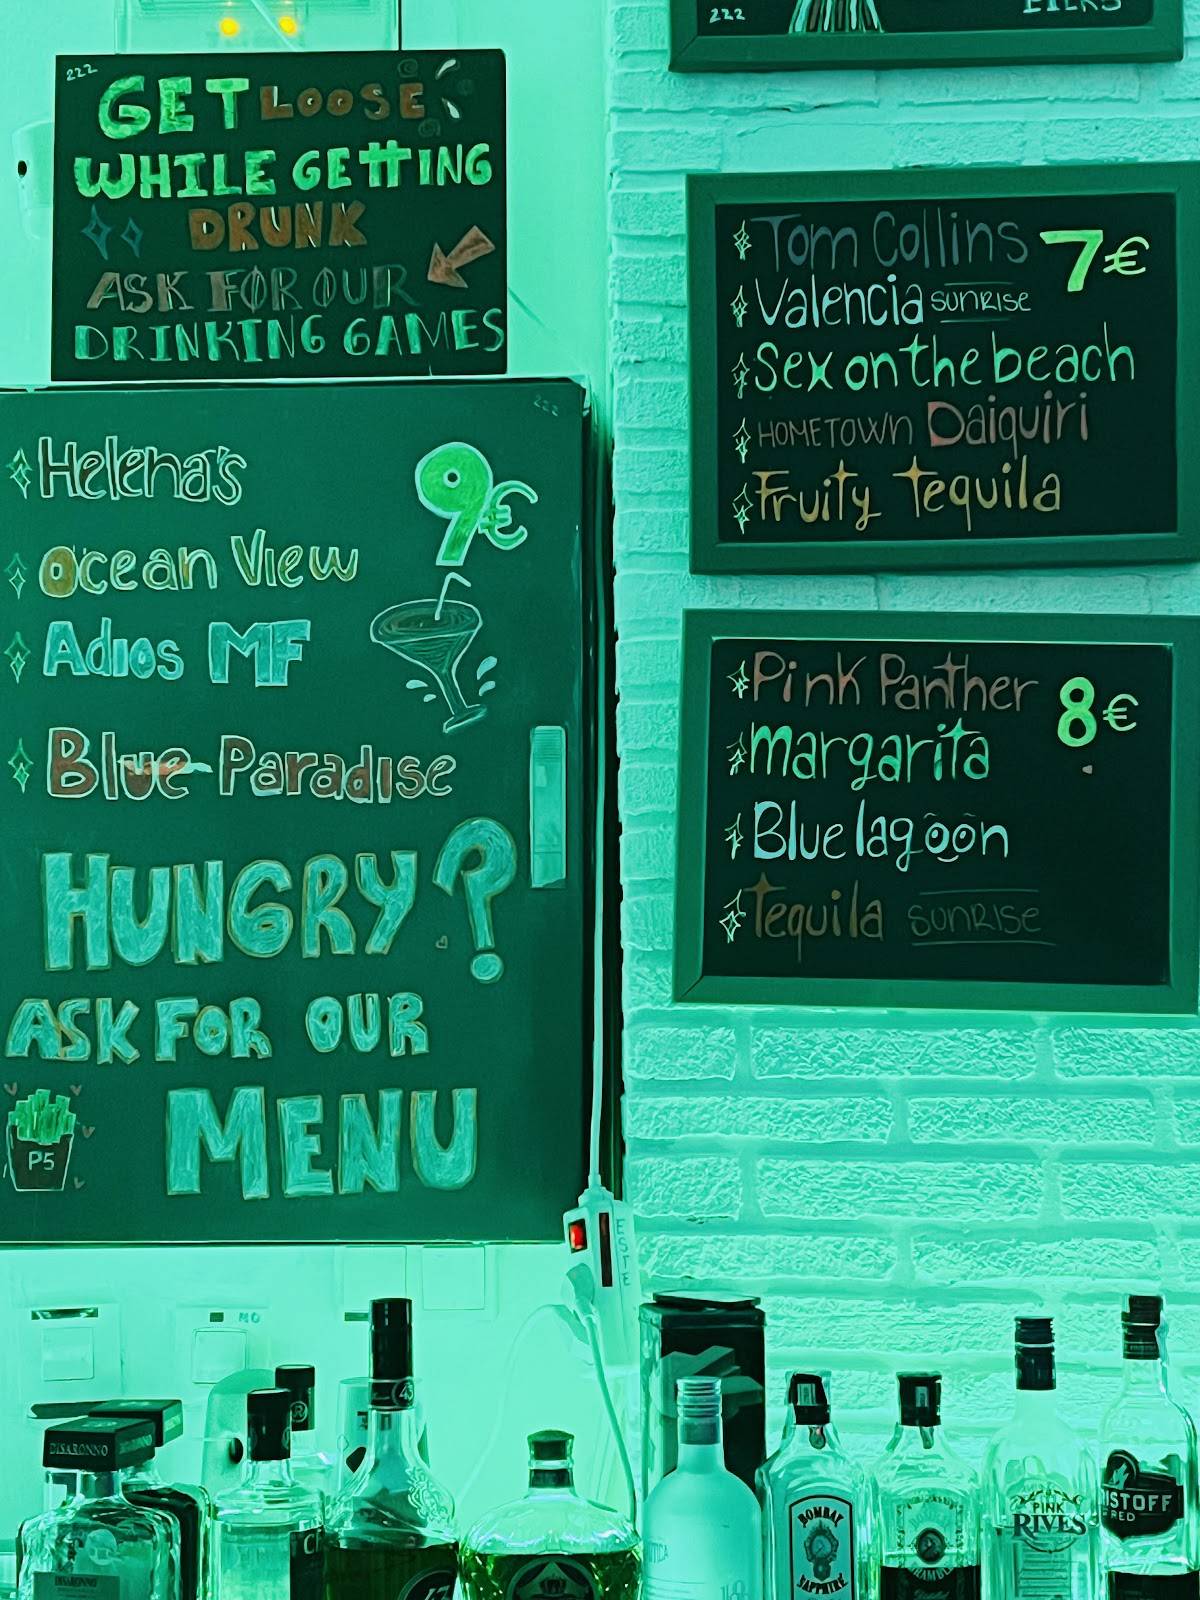 222
GET LOOSE
WHILE GETTING
DRUNK
ASK FOR OUR
DRINKING GAMES
222
Helena's
9€
Ocean View
Adios MF
Blue Paradise
HUNGRY?
ASK FOR OUR
MENU
P5
222
Tom Collins 7€
Valencia SUNRISE
Sex on the beach
HOMETOWN Daiquiri
Fruity Tequila
Pink Panther 8€
margarita
Blue lagoon
Tequila SUNRISE
ESTE
DISARONNO
DISARONNO
43
43
BOMBAY
SAPPHIRE
PINK
RIVES
ISTOFF
RED